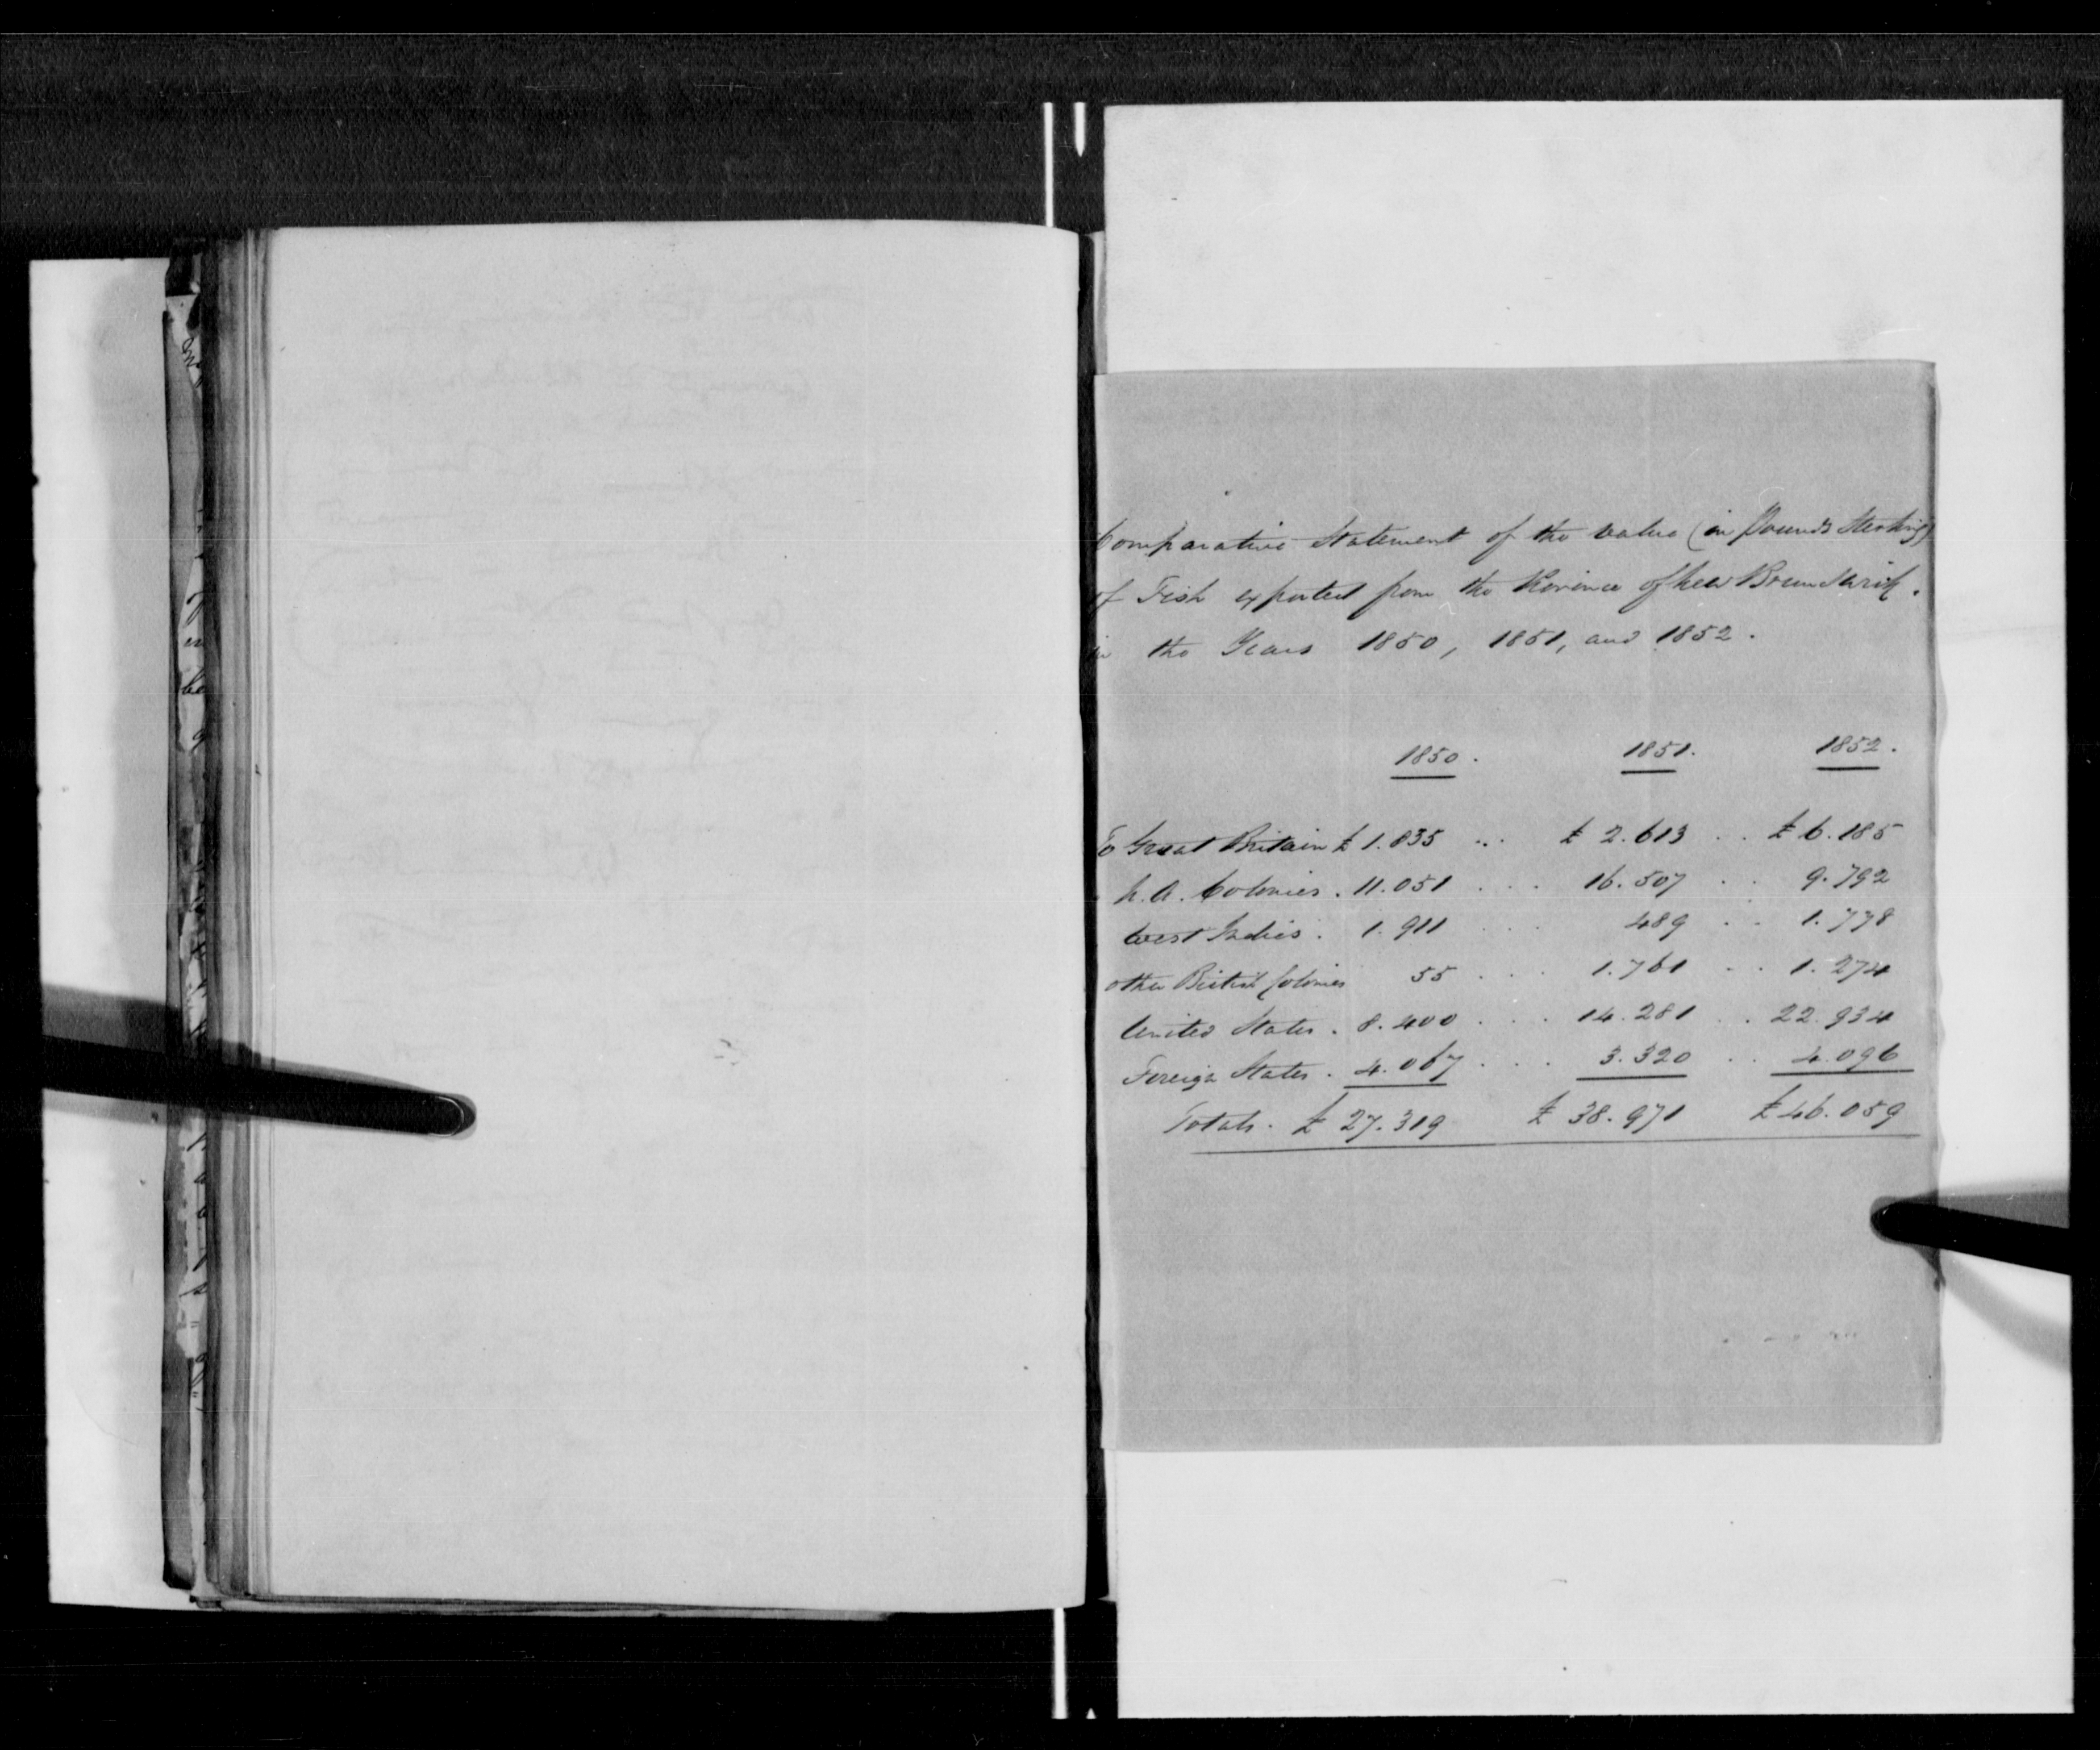 Comparative Statement of the value (in Pounds Sterling)
of Fish exported from the Province of New Brunswick.
in the Years 1850, 1851, and 1852.
1850. 1851. 1852.
To Great Britain £ 1.835 ... £ 2.613 .. £ 6.185
N. A. Colonies . 11.051 ... 16.507 .. 9.792
West Indies . 1.911 ... 489 .. 1.778
other British Colonies 55 ... 1.761 .. 1.274
United States . 8.400 ... 14.281 .. 22.934
Foreign States . 4.067 ... 3.320 .. 4.096
Totals. £ 27.319 £ 38.971 £ 46.059